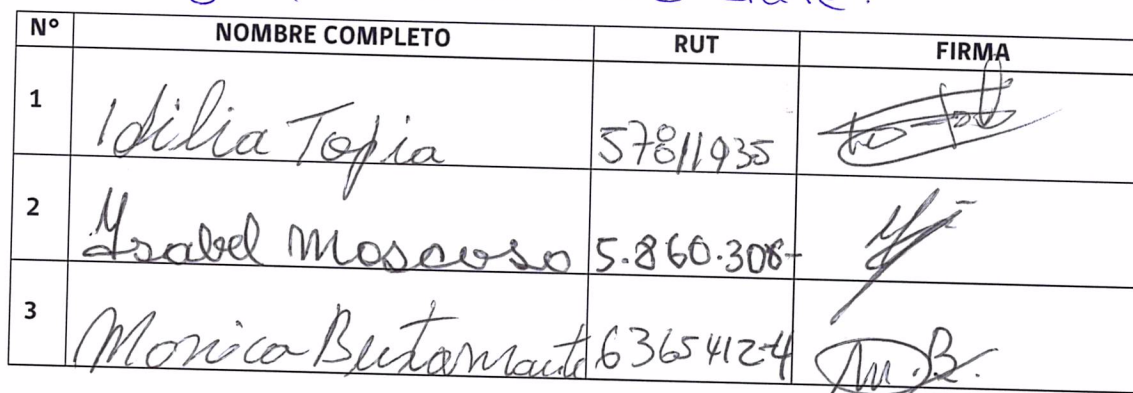 N° NOMBRE COMPLETO RUT FIRMA
1 Idilia Tapia 57811935
2 Ysabel Moscoso 5.860.308-
3 Monica Bustamante 6365412-4 M.B.